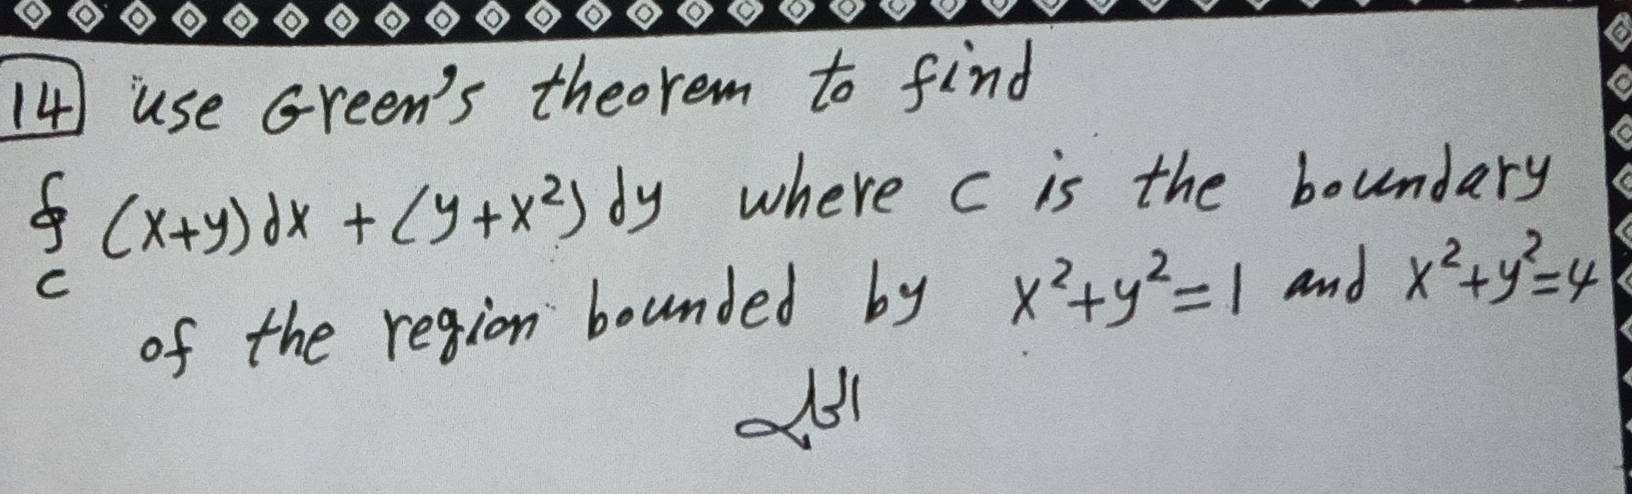 14 use Green's theorem to find
∮ (x+y)dx + (y+x²)dy where c is the boundary
c
of the region bounded by x²+y²=1 and x²+y²=4